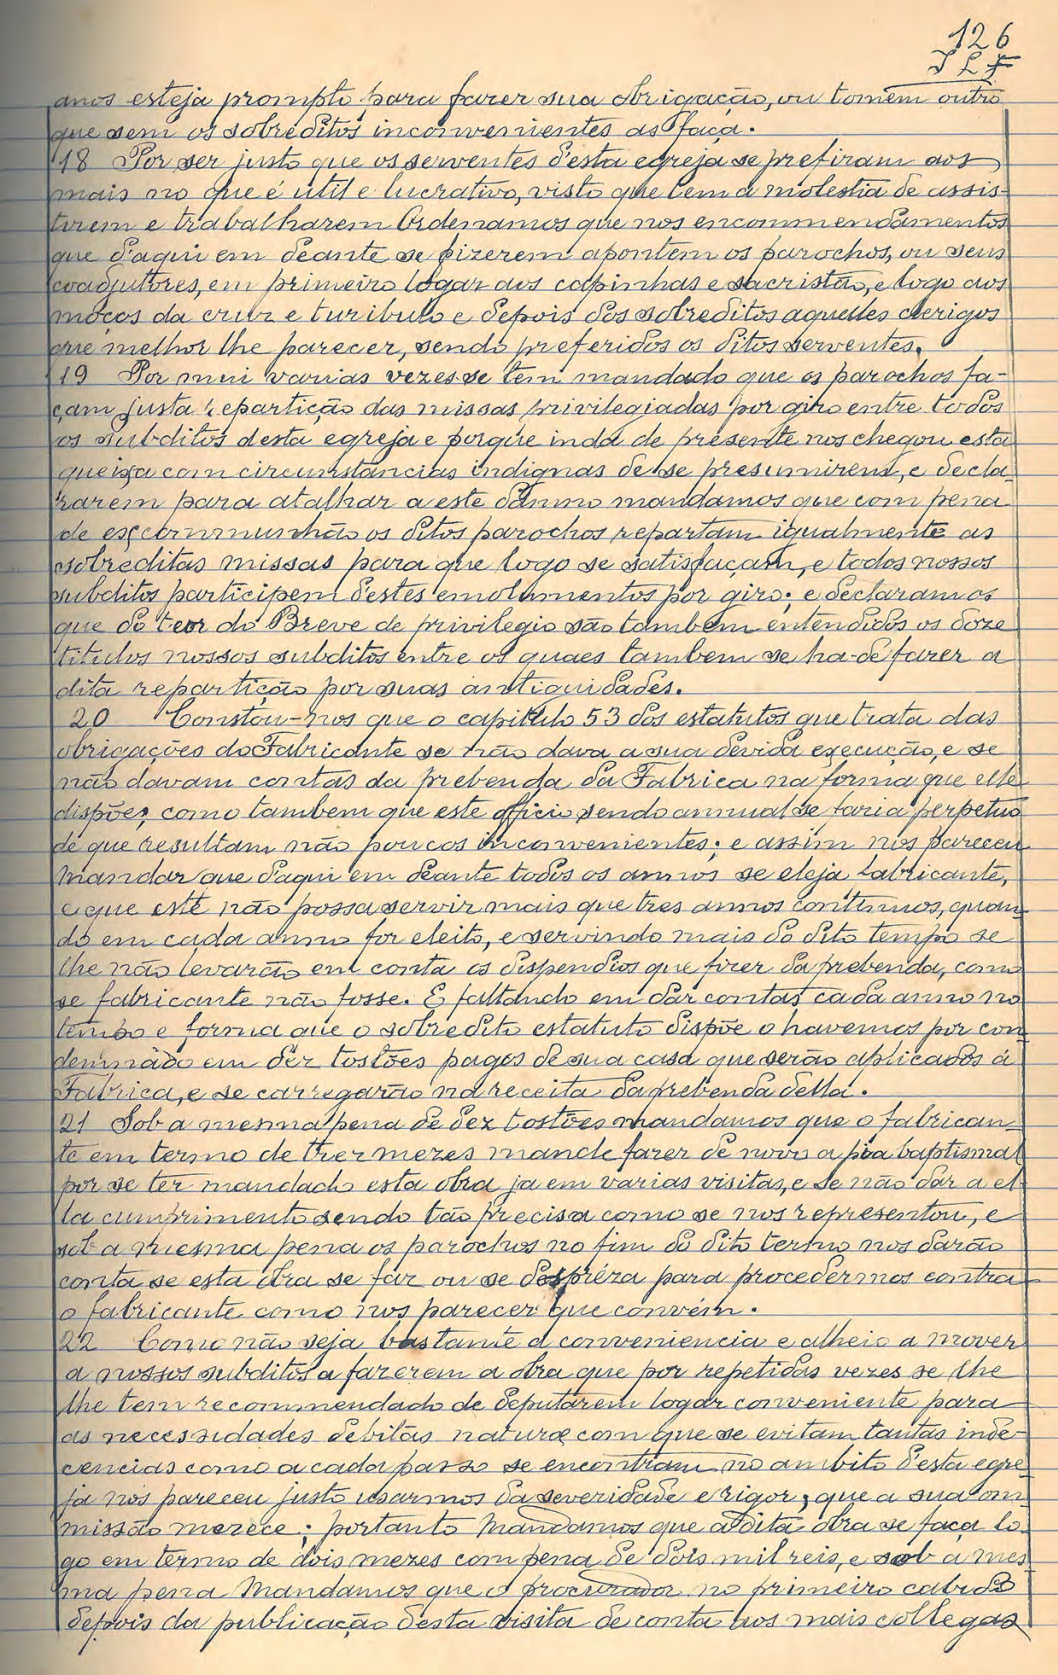 126
JLF
anos esteja prompto para fazer sua obrigação, ou tomem outro
que sem os sobreditos inconvenientes as faça.
18 Por ser justo que os serventes d'esta egreja se prefiram aos
mais no que é util e lucrativo, visto que tem a molestia de assis-
tirem e trabalharem Ordenamos que nos encommendamentos
que d'aqui em deante se fizerem apontem os parochos, ou seus
coadjutores, em primeiro logar aos capinhas e sacristão, e logo aos
moços da cruz e turibulo e depois dos sobreditos aquelles clerigos
que melhor lhe parecer, sendo preferidos os ditos serventes.
19 Por mui varias vezes se tem mandado que os parochos fa-
çam justa repartição das missas privilegiadas por giro entre todos
os subditos desta egreja e porque inda de presente nos chegou esta
queixa com circumstancias indignas de se presumirem, e decla-
rarem para atalhar a este damno mandamos que com pena
de excommunhão os ditos parochos repartam igualmente as
sobreditas missas para que logo se satisfaçam, e todos nossos
subditos participem d'estes emolumentos por giro; e declaramos
que do teor do Breve de privilegio são tambem entendidos os doze
titulos nossos subditos entre os quaes tambem se ha-de fazer a
dita repartição por suas antiguidades.
20 Constou-nos que o capitulo 53 dos estatutos que trata das
obrigações do Fabricante se não dava a sua devida execução, e se
não davam contas da prebenda da Fabrica na forma que elle
dispõe, como tambem que este officio sendo annual se faria perpetuo
de que resultam não poucos inconvenientes; e assim nos pareceu
Mandar que d'aqui em deante todos os annos se eleja Fabricante,
e que este não possa servir mais que tres annos continuos, quan-
do em cada anno for eleito, e servindo mais do dito tempo se
lhe não levarão em conta os dispendios que fizer da prebenda, como
se fabricante não fosse. E faltando em dar contas cada anno no
tempo e forma que o sobredito estatuto dispõe o havemos por con-
demnado em dez tostões pagos de sua casa que serão aplicados á
Fabrica, e se carregarão na receita da prebenda della.
21 Sob a mesma pena de dez tostões mandamos que o fabrican-
te em termo de trez mezes mande fazer de novo a pia baptismal
por se ter mandado esta obra ja em varias visitas, e se não dar a el-
la cumprimento sendo tão precisa como se nos representou, e
sob a mesma pena os parochos no fim do dito termo nos darão
conta se esta obra se faz ou se despréza para procedermos contra
o fabricante como nos parecer que convém.
22 Como não seja bastante a conveniencia e alheio a mover
a nossos subditos a fazerem a obra que por repetidas vezes se lhe
lhe tem recommendado de deputarem logar conveniente para
as necessidades debitas naturæ com que se evitam tantas inde-
cencias como a cada passo se encontram no ambito d'esta egre-
ja nos pareceu justo usarmos da severidade e rigor, que a sua om-
missão merece; portanto Mandamos que a dita obra se faça lo-
go em termo de dois mezes com pena de dois mil reis, e sob a mes-
ma pena Mandamos que o procurador no primeiro cabido
depois da publicação desta visita de conta aos mais collegas